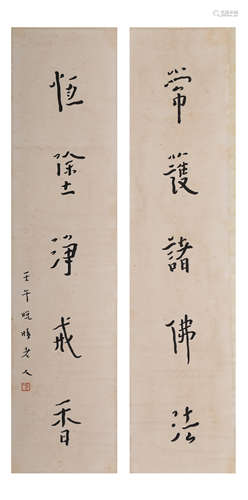 常護諸佛法
恒塗淨戒香
壬午晚晴老人